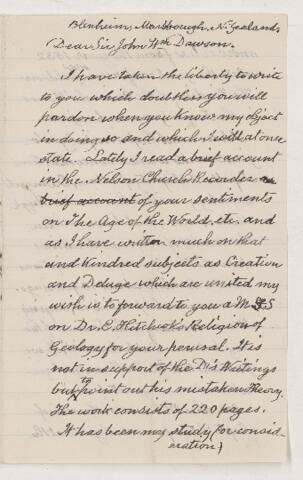 Blenheim, Marlborough, N. Zealand,
Dear Sir John Wm Dawson.
I have taken the liberty to write
to you which doubtless you will
pardon when you know my object
in doing so and which I will at once
state. Lately I read a brief account
in the Nelson Church Recorder
brief account of your sentiments
on The Age of the World, etc. and
as I have written much on that
and kindred subjects as Creation
and Deluge which are united my
wish is to forward to you a M.S.S
on Dr. E. Hitchcok's Religion of
Geology for your perusal. It is
not in support of the Dr's Writings
but to point out his mistaken Theory.
The work consists of 220 pages.
It has been my study (for consid-
eration)